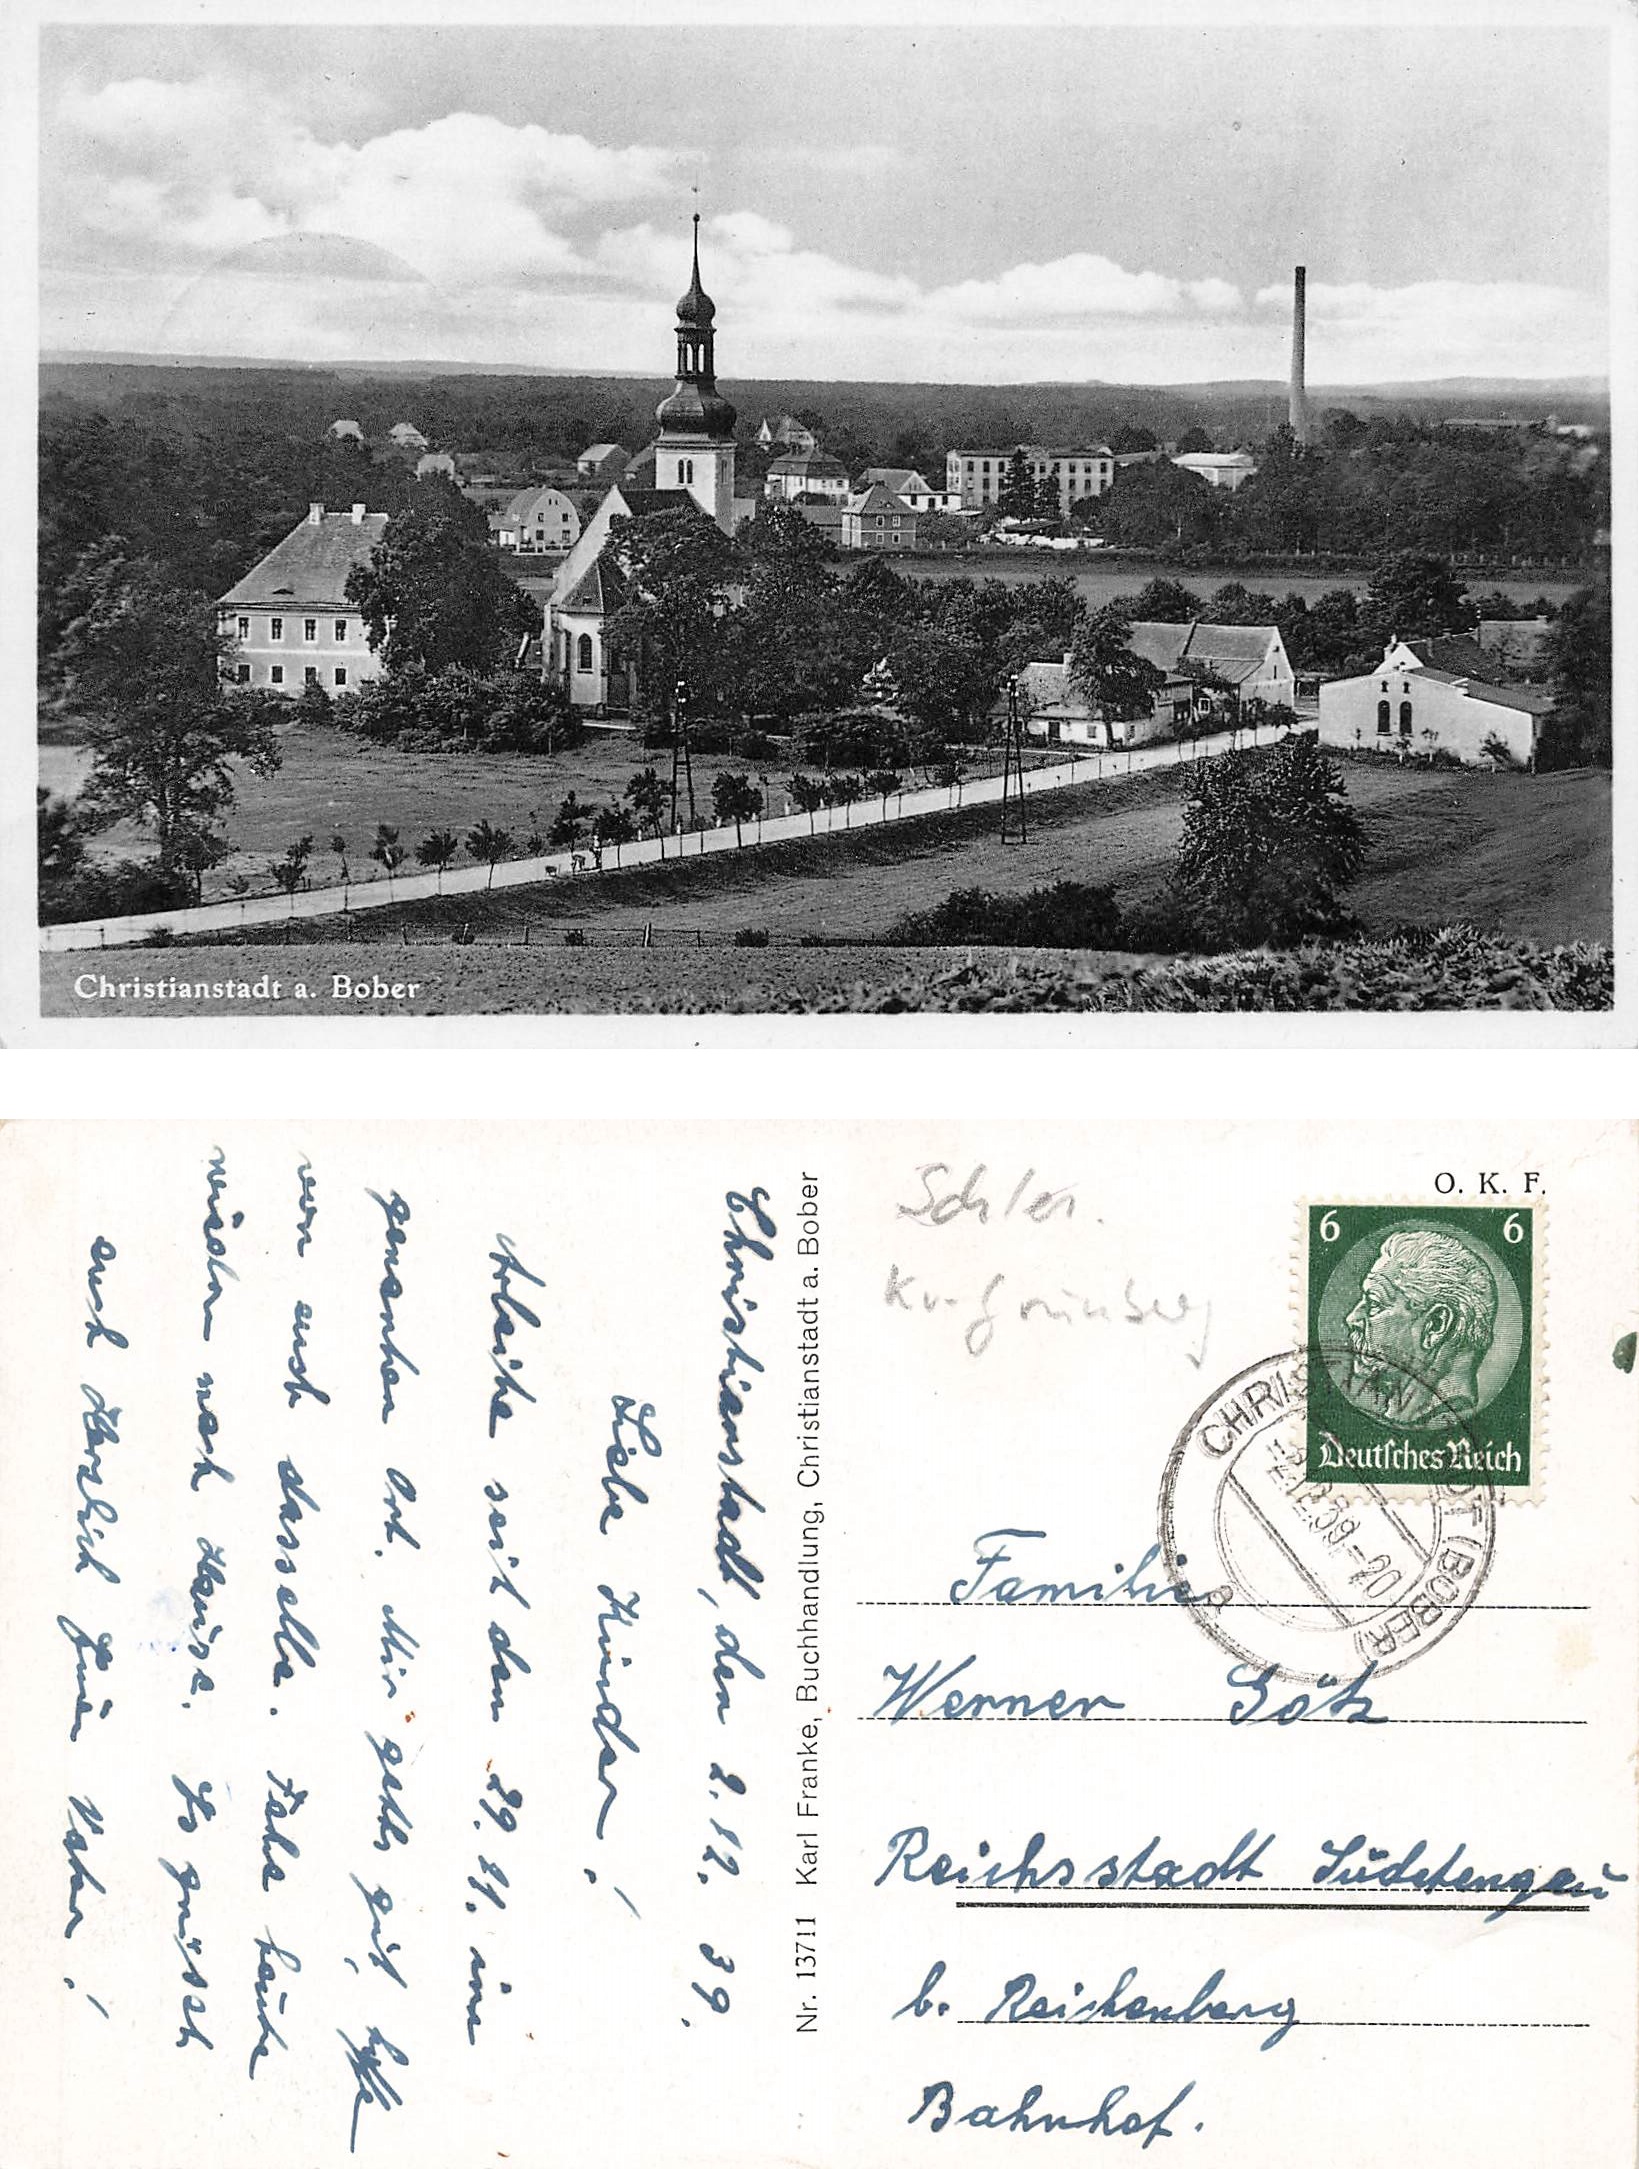 Christianstadt a. Bober
Christianstadt, den 2. 12. 39.
Liebe Kinder!
Arbeite seit den 29. 11. im
genanten Ort. Mir gehts gut, hoffe
von euch dasselbe. Fahre heute
wieder nach Hause. Es grüsset
euch Herzlich Euer Vater!
Nr. 13711 Karl Franke, Buchhandlung, Christianstadt a. Bober
Schles.
Kr. Grünberg
O. K. F.
6 6
Deutsches Reich
CHRISTIANSTADT (BOBER)
12.39.-20
a
Familie
Werner Götz
Reichsstadt Südetengau
b. Reichenberg
Bahnhof.